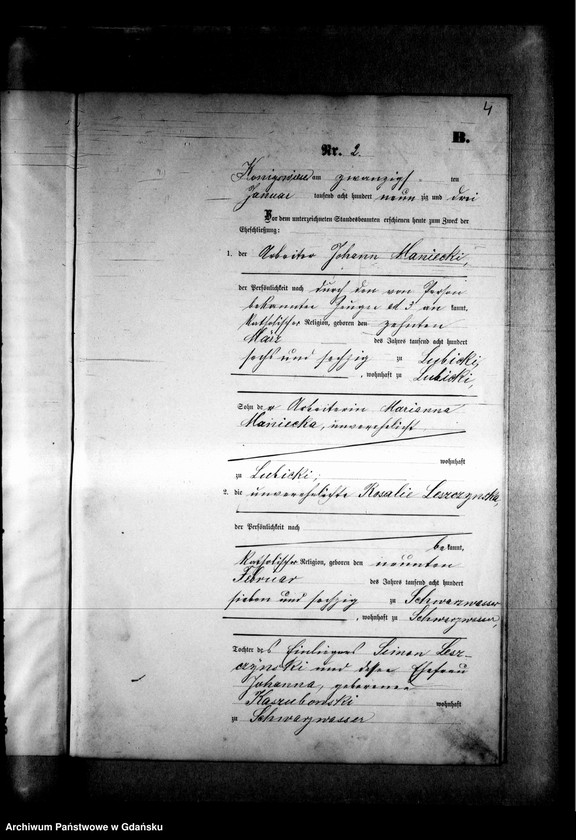 4
B.
Nr. 2.
am zwanzigsten
Januar tausend acht hundert neunzig und drei
Vor dem unterzeichneten Standesbeamten erschienen heute zum Zweck der
Eheschließung:
1. der Arbeiter Johann Maniecki,
der Persönlichkeit nach durch den von Person
bekannten Zeugen ad 3 an kannt,
katholischer Religion, geboren den zehnten
März des Jahres tausend acht hundert
sechs und sechzig zu Lubicki,
, wohnhaft zu Lubicki,
Sohn der Arbeiterin Marianna
Maniecka, unverehelicht
wohnhaft
zu Lubicki;
2. die unverehelichte Rosalie Leszczynska,
der Persönlichkeit nach
bekannt,
katholischer Religion, geboren den neunten
Februar des Jahres tausend acht hundert
sieben und sechzig zu Schwarzwasser
, wohnhaft zu Schwarzwasser,
Tochter des Einliegers Simon Lesz-
czynski und dessen Ehefrau
Johanna, geborene
Kaszubowski wohnhaft
zu Schwarzwasser
Archiwum Państwowe w Gdańsku